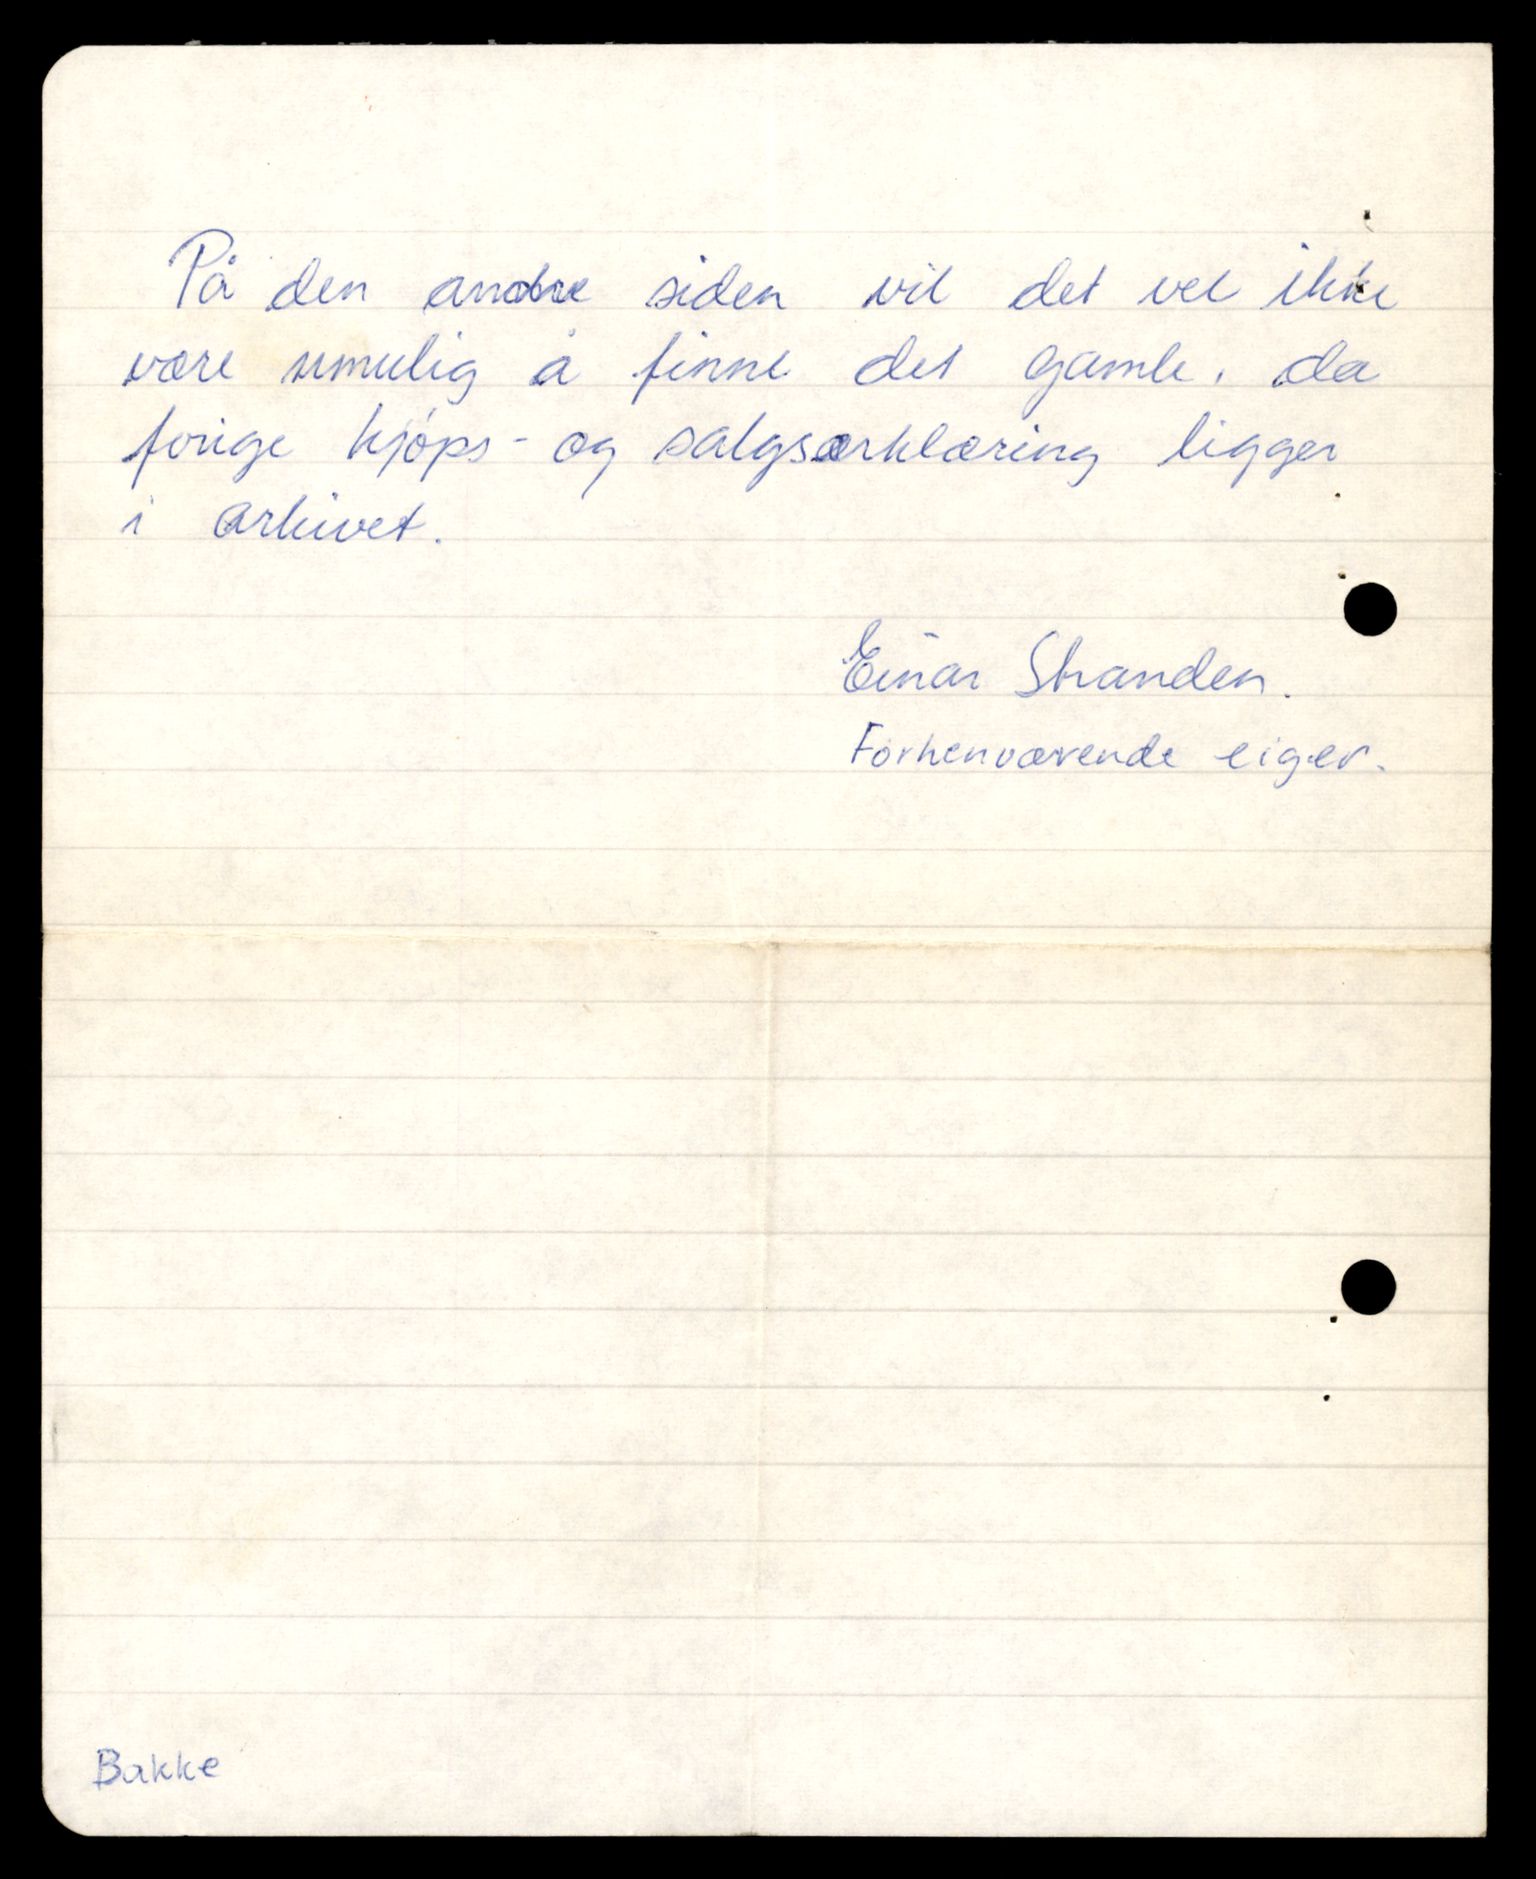 På den andre siden vil det vel ikke
være umulig å finne det gamle, da
forige kjøps- og salgsærklæring ligger
i arkivet.
Einar Stranden.
Forhenværende eiger.
Bakke